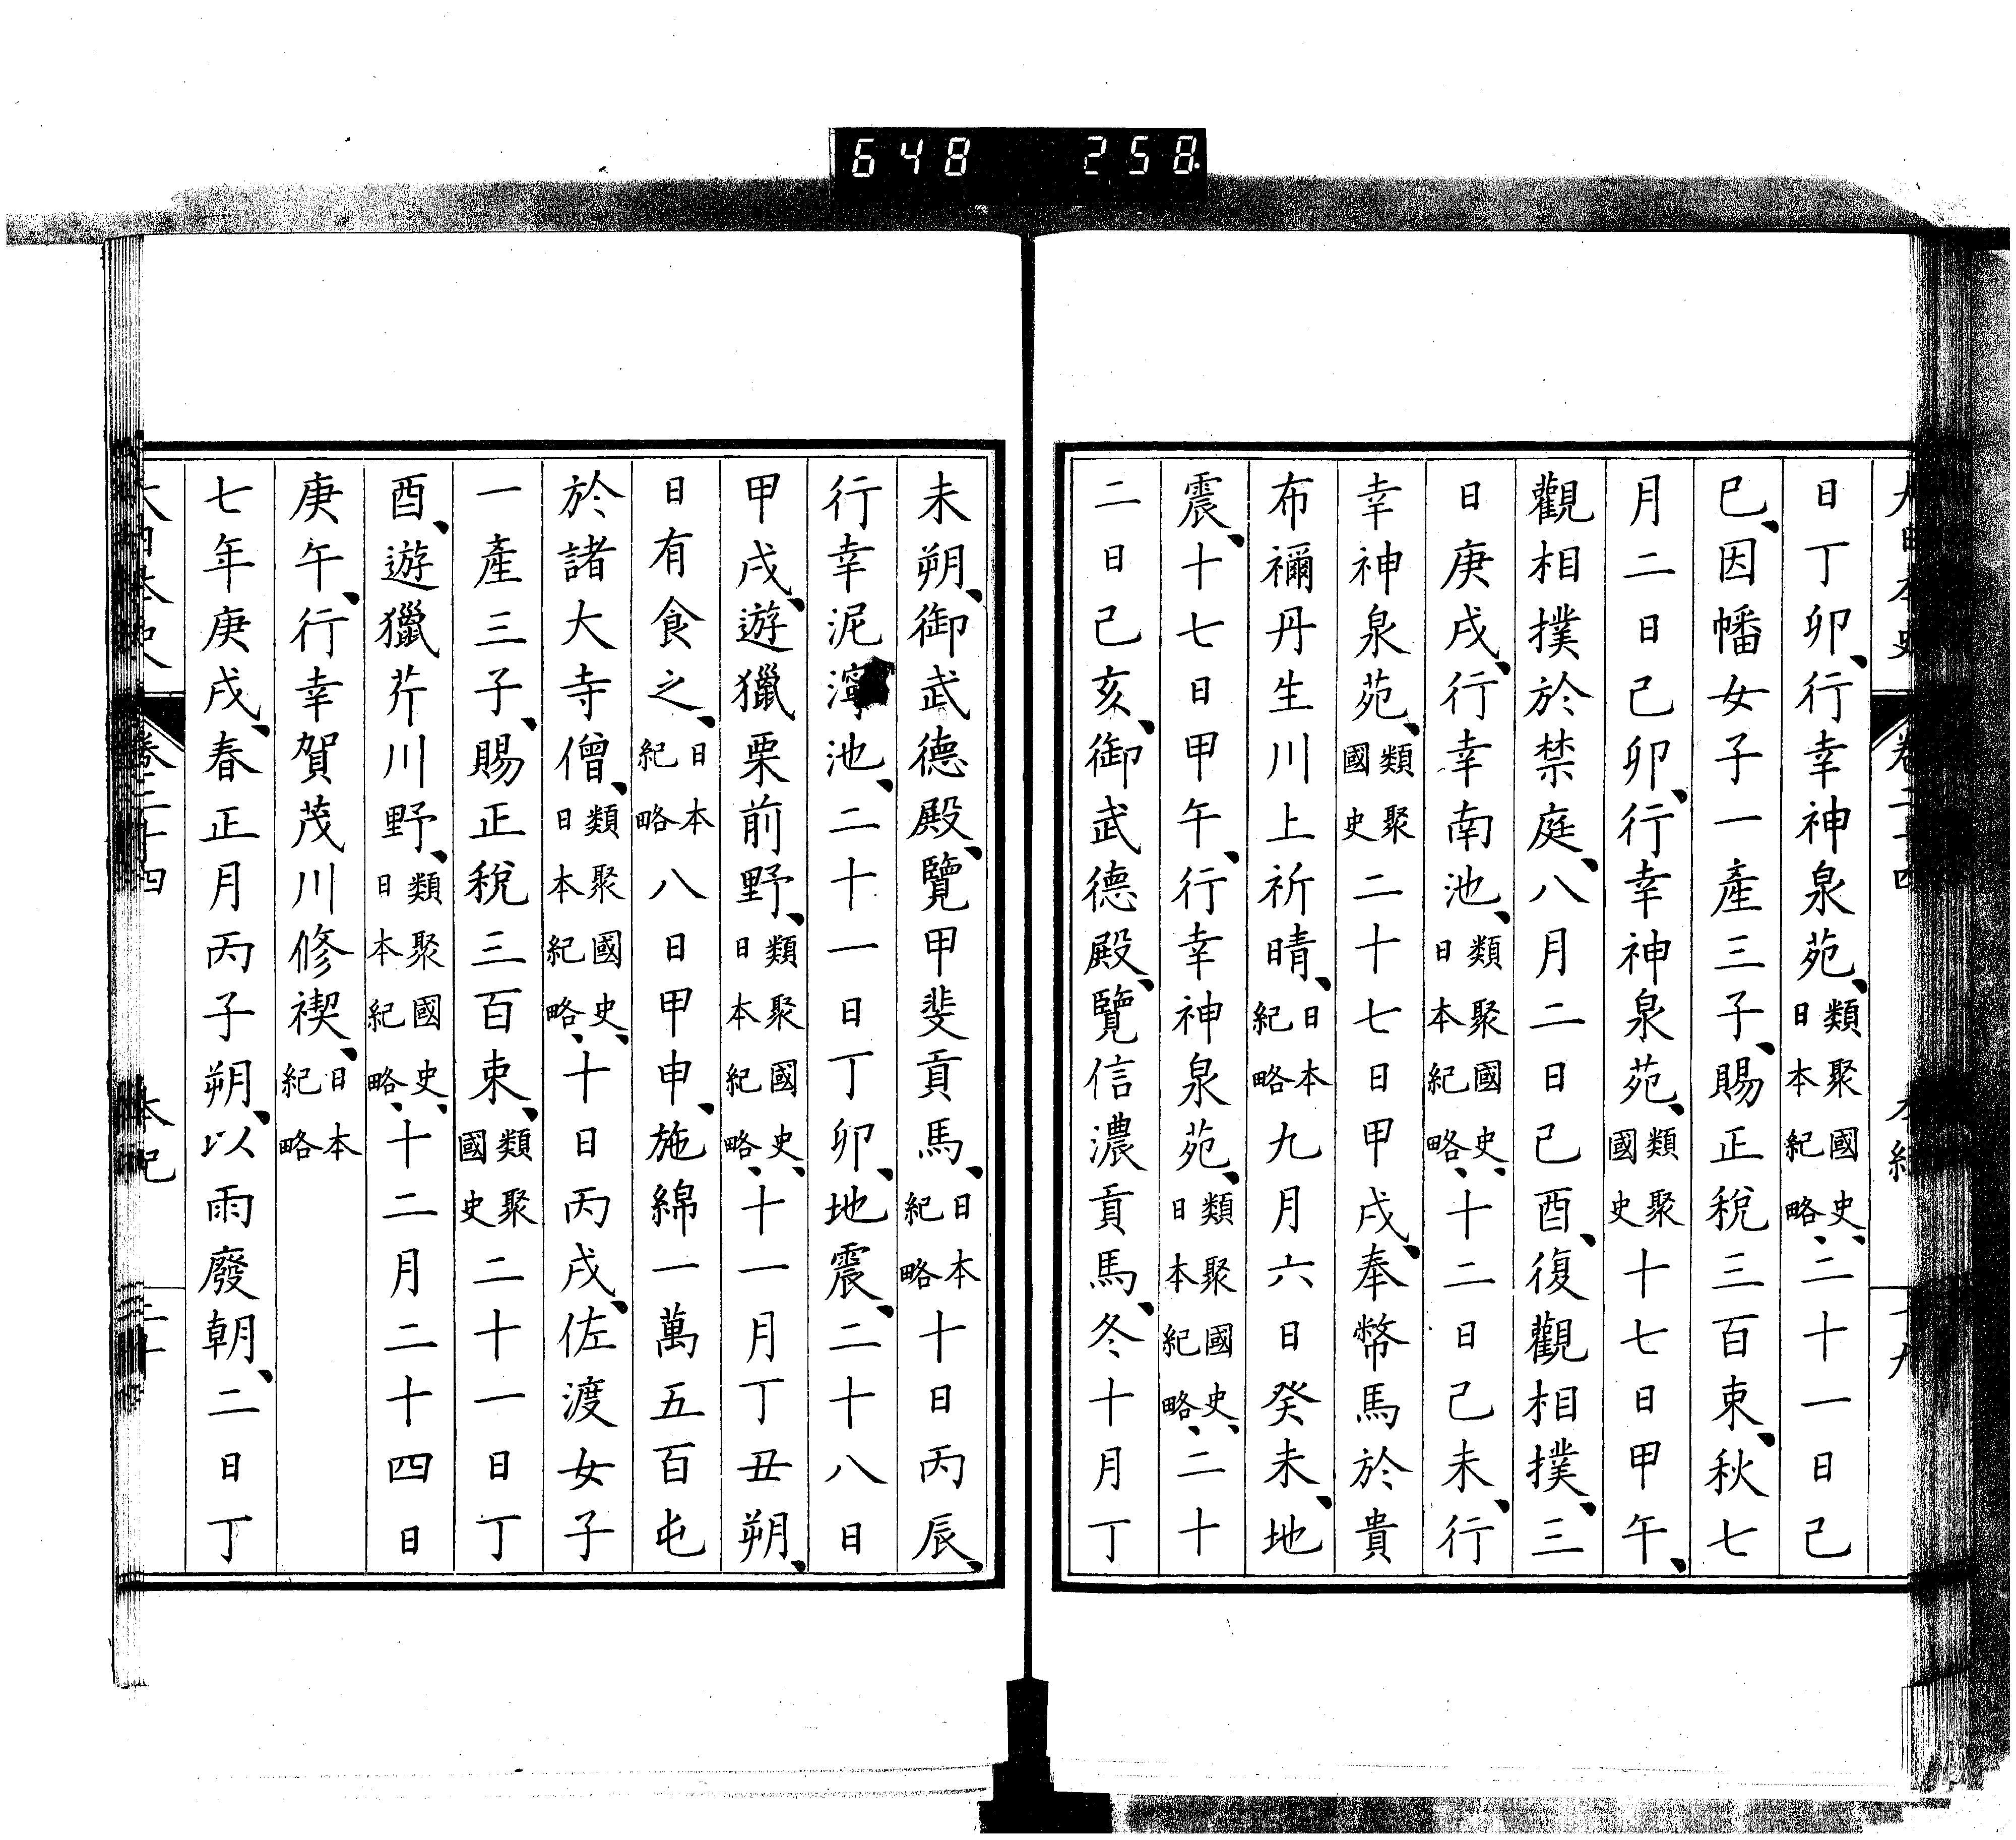 648 258
大日本史 卷二十四 本紀 十九
日丁卯、行幸神泉苑、類聚國史、日本紀略、二十一日己
巳、因幡女子一產三子、賜正稅三百束、秋七
月二日己卯、行幸神泉苑、類聚國史十七日甲午、
觀相撲於禁庭、八月二日己酉、復觀相撲、三
日庚戌、行幸南池、類聚國史、日本紀略、十二日己未、行
幸神泉苑、類聚國史二十七日甲戌、奉幣馬於貴
布禰丹生川上祈晴、日本紀略九月六日癸未、地
震、十七日甲午、行幸神泉苑、類聚國史、日本紀略、二十
二日己亥、御武德殿、覽信濃貢馬、冬十月丁
未朔、御武德殿、覽甲斐貢馬、日本紀略十日丙辰、
行幸泥濘池、二十一日丁卯、地震、二十八日
甲戌、遊獵栗前野、類聚國史、日本紀略、十一月丁丑朔、
日有食之、日本紀略八日甲申、施綿一萬五百屯
於諸大寺僧、類聚國史、日本紀略、十日丙戌、佐渡女子
一產三子、賜正稅三百束、類聚國史二十一日丁
酉、遊獵芹川野、類聚國史、日本紀略、十二月二十四日
庚午、行幸賀茂川修禊、日本紀略
七年庚戌、春正月丙子朔、以雨廢朝、二日丁
大日本史 卷二十四 本紀 二十